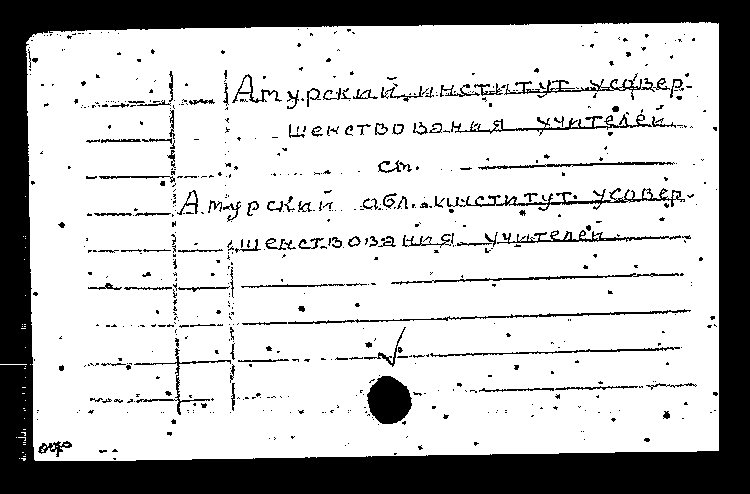 Амурский институт усовер-
шенствования учителей
см.
Амурский обл. институт усовер-
шенствования учителей